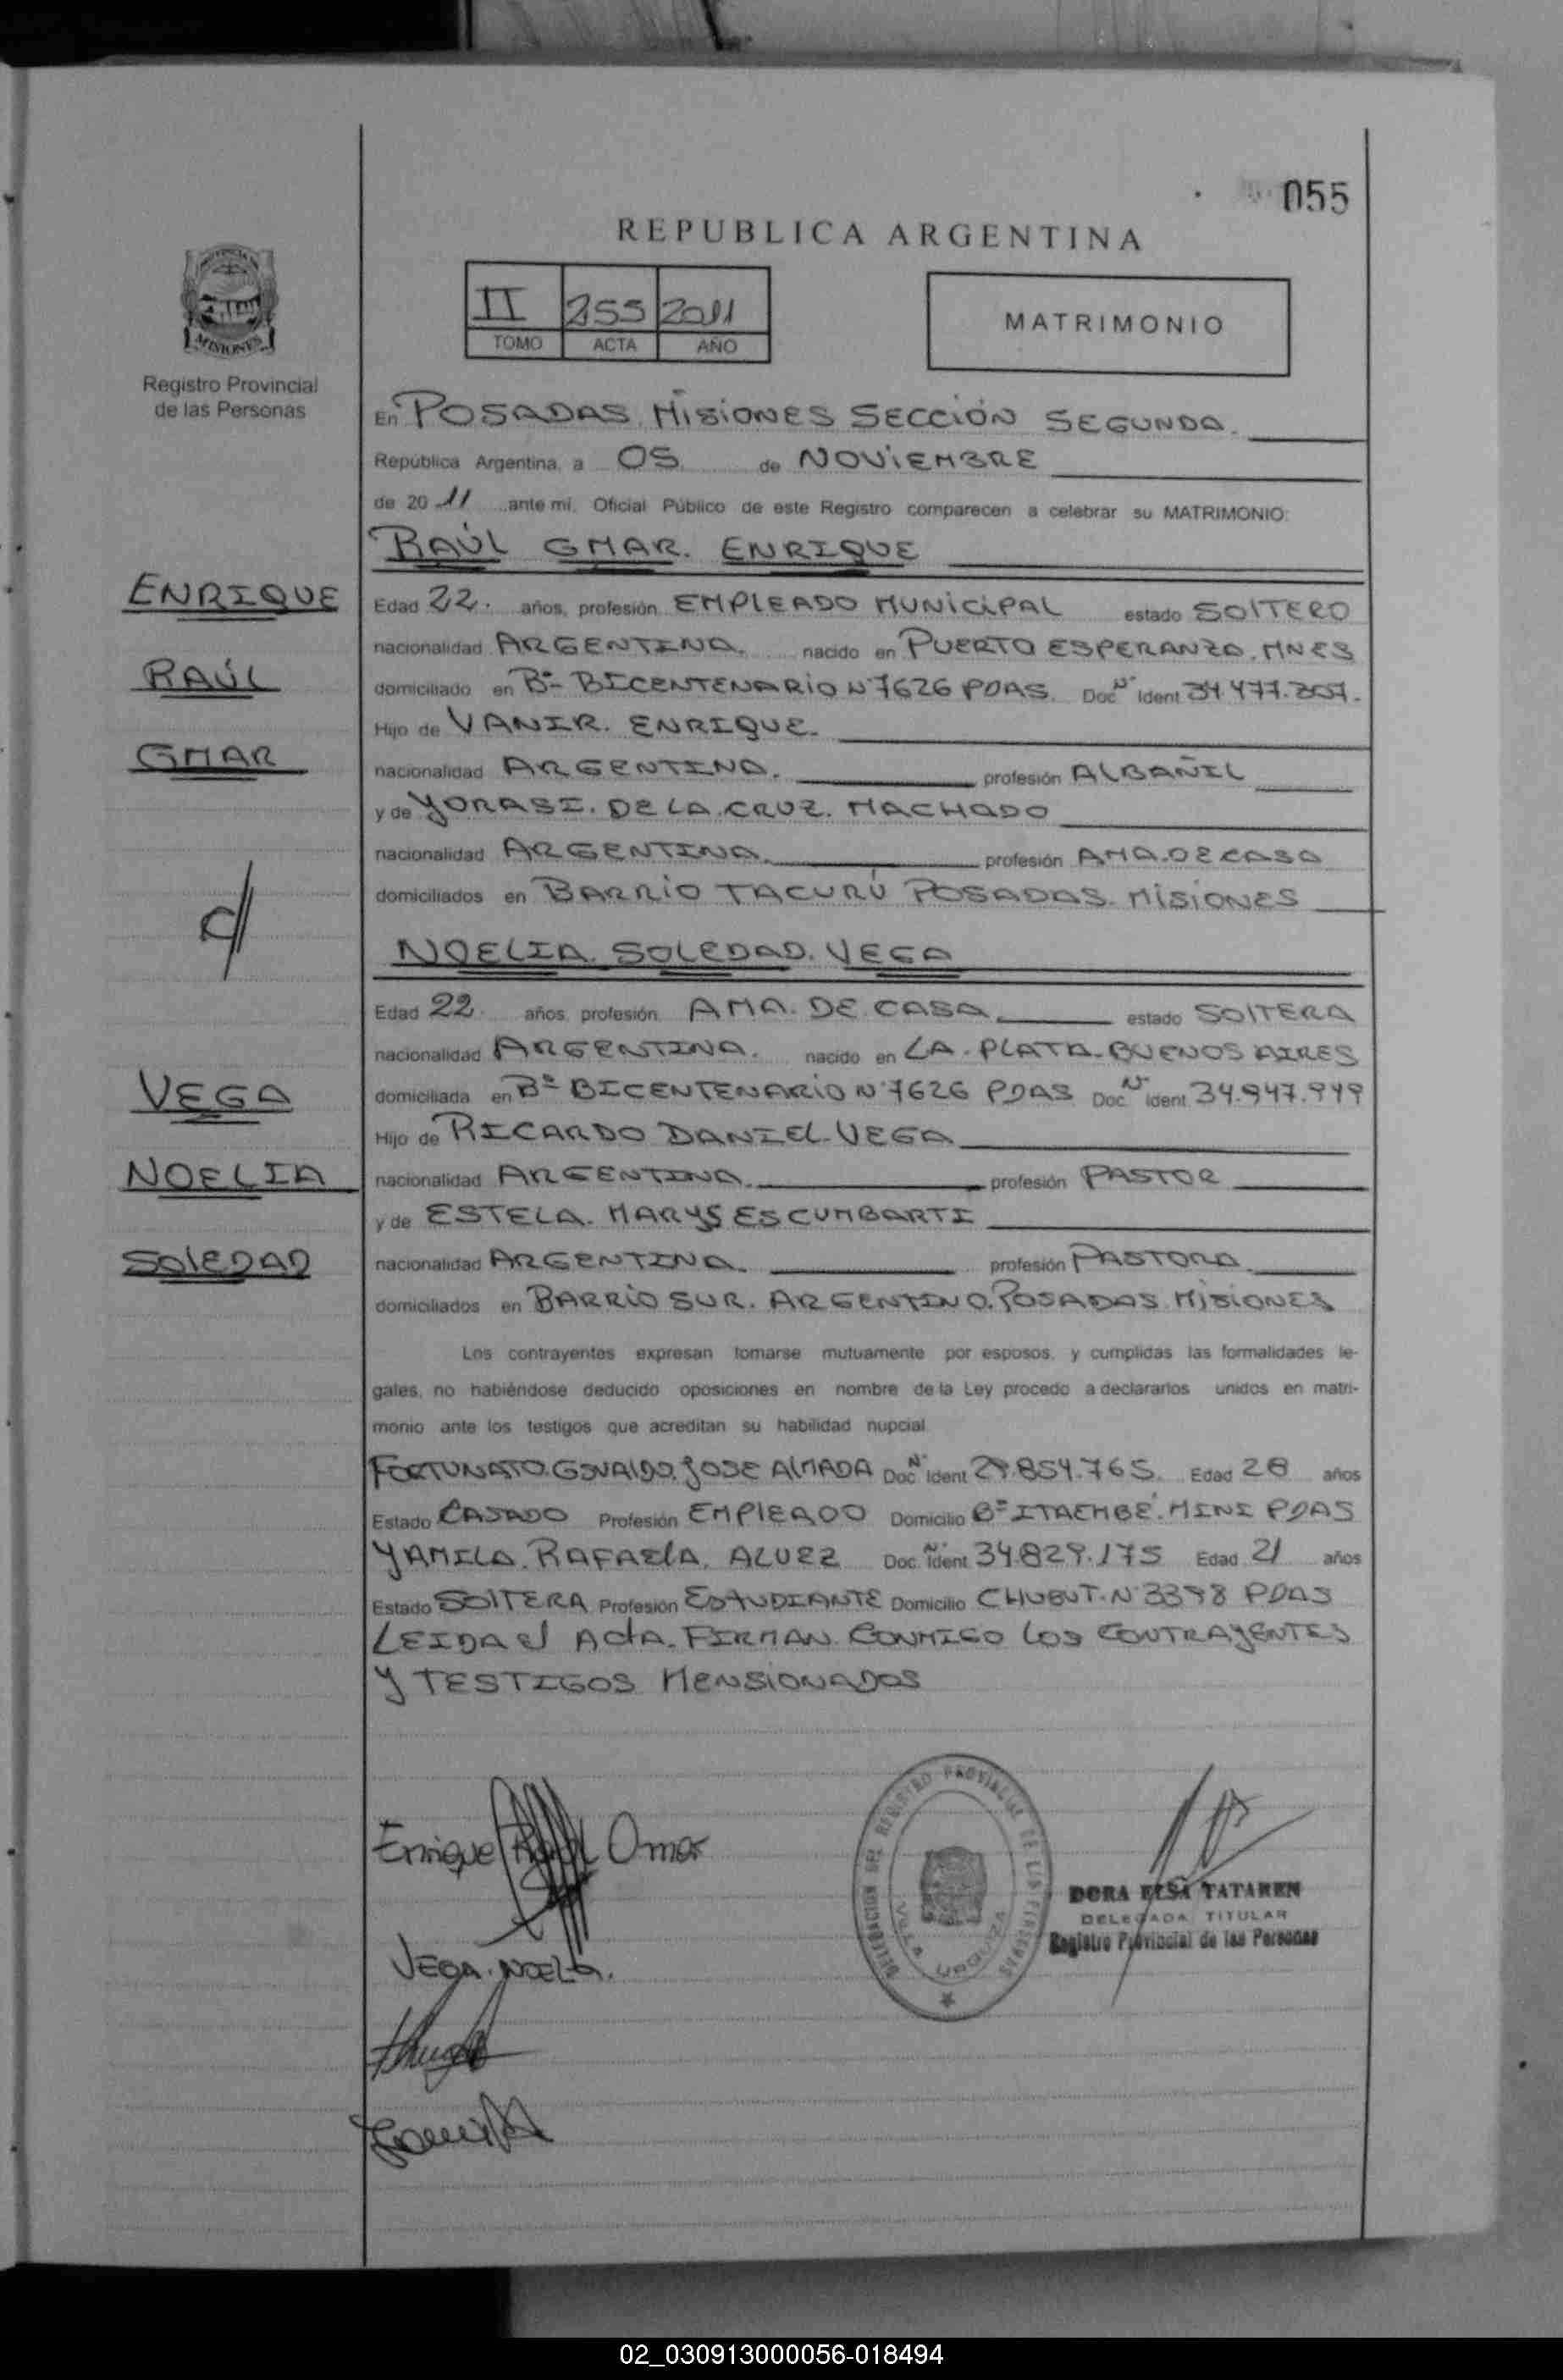 055
REPUBLICA ARGENTINA
II 255 2011
TOMO ACTA AÑO
MATRIMONIO
PROVINCIA DE
MISIONES
Registro Provincial
de las Personas
En POSADAS, MISIONES SECCIÓN SEGUNDA.
República Argentina, a 05 de NOVIEMBRE
de 20 11 ante mi, Oficial Público de este Registro comparecen a celebrar su MATRIMONIO:
RAÚL OMAR. ENRIQUE
ENRIQUE
RAÚL
OMAR
c/
Edad 22. años, profesión EMPLEADO MUNICIPAL estado SOLTERO
nacionalidad ARGENTINA. nacido en PUERTO ESPERANZA. MNES
domiciliado en Bº BICENTENARIO Nº 7626 PDAS. Doc. Nº Ident 34.477.
Hijo de VANIR. ENRIQUE.
nacionalidad ARGENTINA. profesión ALBAÑIL
y de YORASI. DE LA. CRUZ. MACHADO
nacionalidad ARGENTINA. profesión AMA. DE CASA
domiciliados en BARRIO TACURÚ POSADAS. MISIONES
NOELIA. SOLEDAD. VEGA
Edad 22. años, profesión AMA. DE CASA. estado SOLTERA
nacionalidad ARGENTINA. nacido en LA. PLATA. BUENOS AIRES
VEGA
NOELIA
SOLEDAD
domiciliada en Bº BICENTENARIO Nº 7626 PDAS Doc. Nº Ident 34.947.949
Hijo de RICARDO DANIEL. VEGA
nacionalidad ARGENTINA. profesión PASTOR
y de ESTELA. MARYS ESCUMBARTI
nacionalidad ARGENTINA. profesión PASTORA.
domiciliados en BARRIO SUR. ARGENTINO. POSADAS MISIONES
Los contrayentes expresan tomarse mutuamente por esposos, y cumplidas las formalidades le-
gales, no habiéndose deducido oposiciones en nombre de la Ley procedo a declararlos unidos en matri-
monio ante los testigos que acreditan su habilidad nupcial
FORTUNATO. OSVALDO. JOSE ALMADA Doc. Nº Ident 29.854.765. Edad 28 años
Estado CASADO Profesión EMPLEADO Domicilio Bº ITAEMBÉ. MINI PDAS
YAMILA. RAFAELA. ALVEZ Doc. Nº Ident 34.829.175 Edad 21 años
Estado SOLTERA Profesión ESTUDIANTE Domicilio CHUBUT. Nº 3398 PDAS
LEIDA el ActA. FIRMAN CONMIGO LOS CONTRAYENTES
Y TESTIGOS MENSIONADOS
Enrique Raúl Omar
VEGA. NOELIA.
DELEGACION DEL REGISTRO PROVINCIAL DE LAS PERSONAS
VILLA URQUIZA
DORA ELSA TATAREN
DELEGADA TITULAR
Registro Provincial de las Personas
02_030913000056-018494